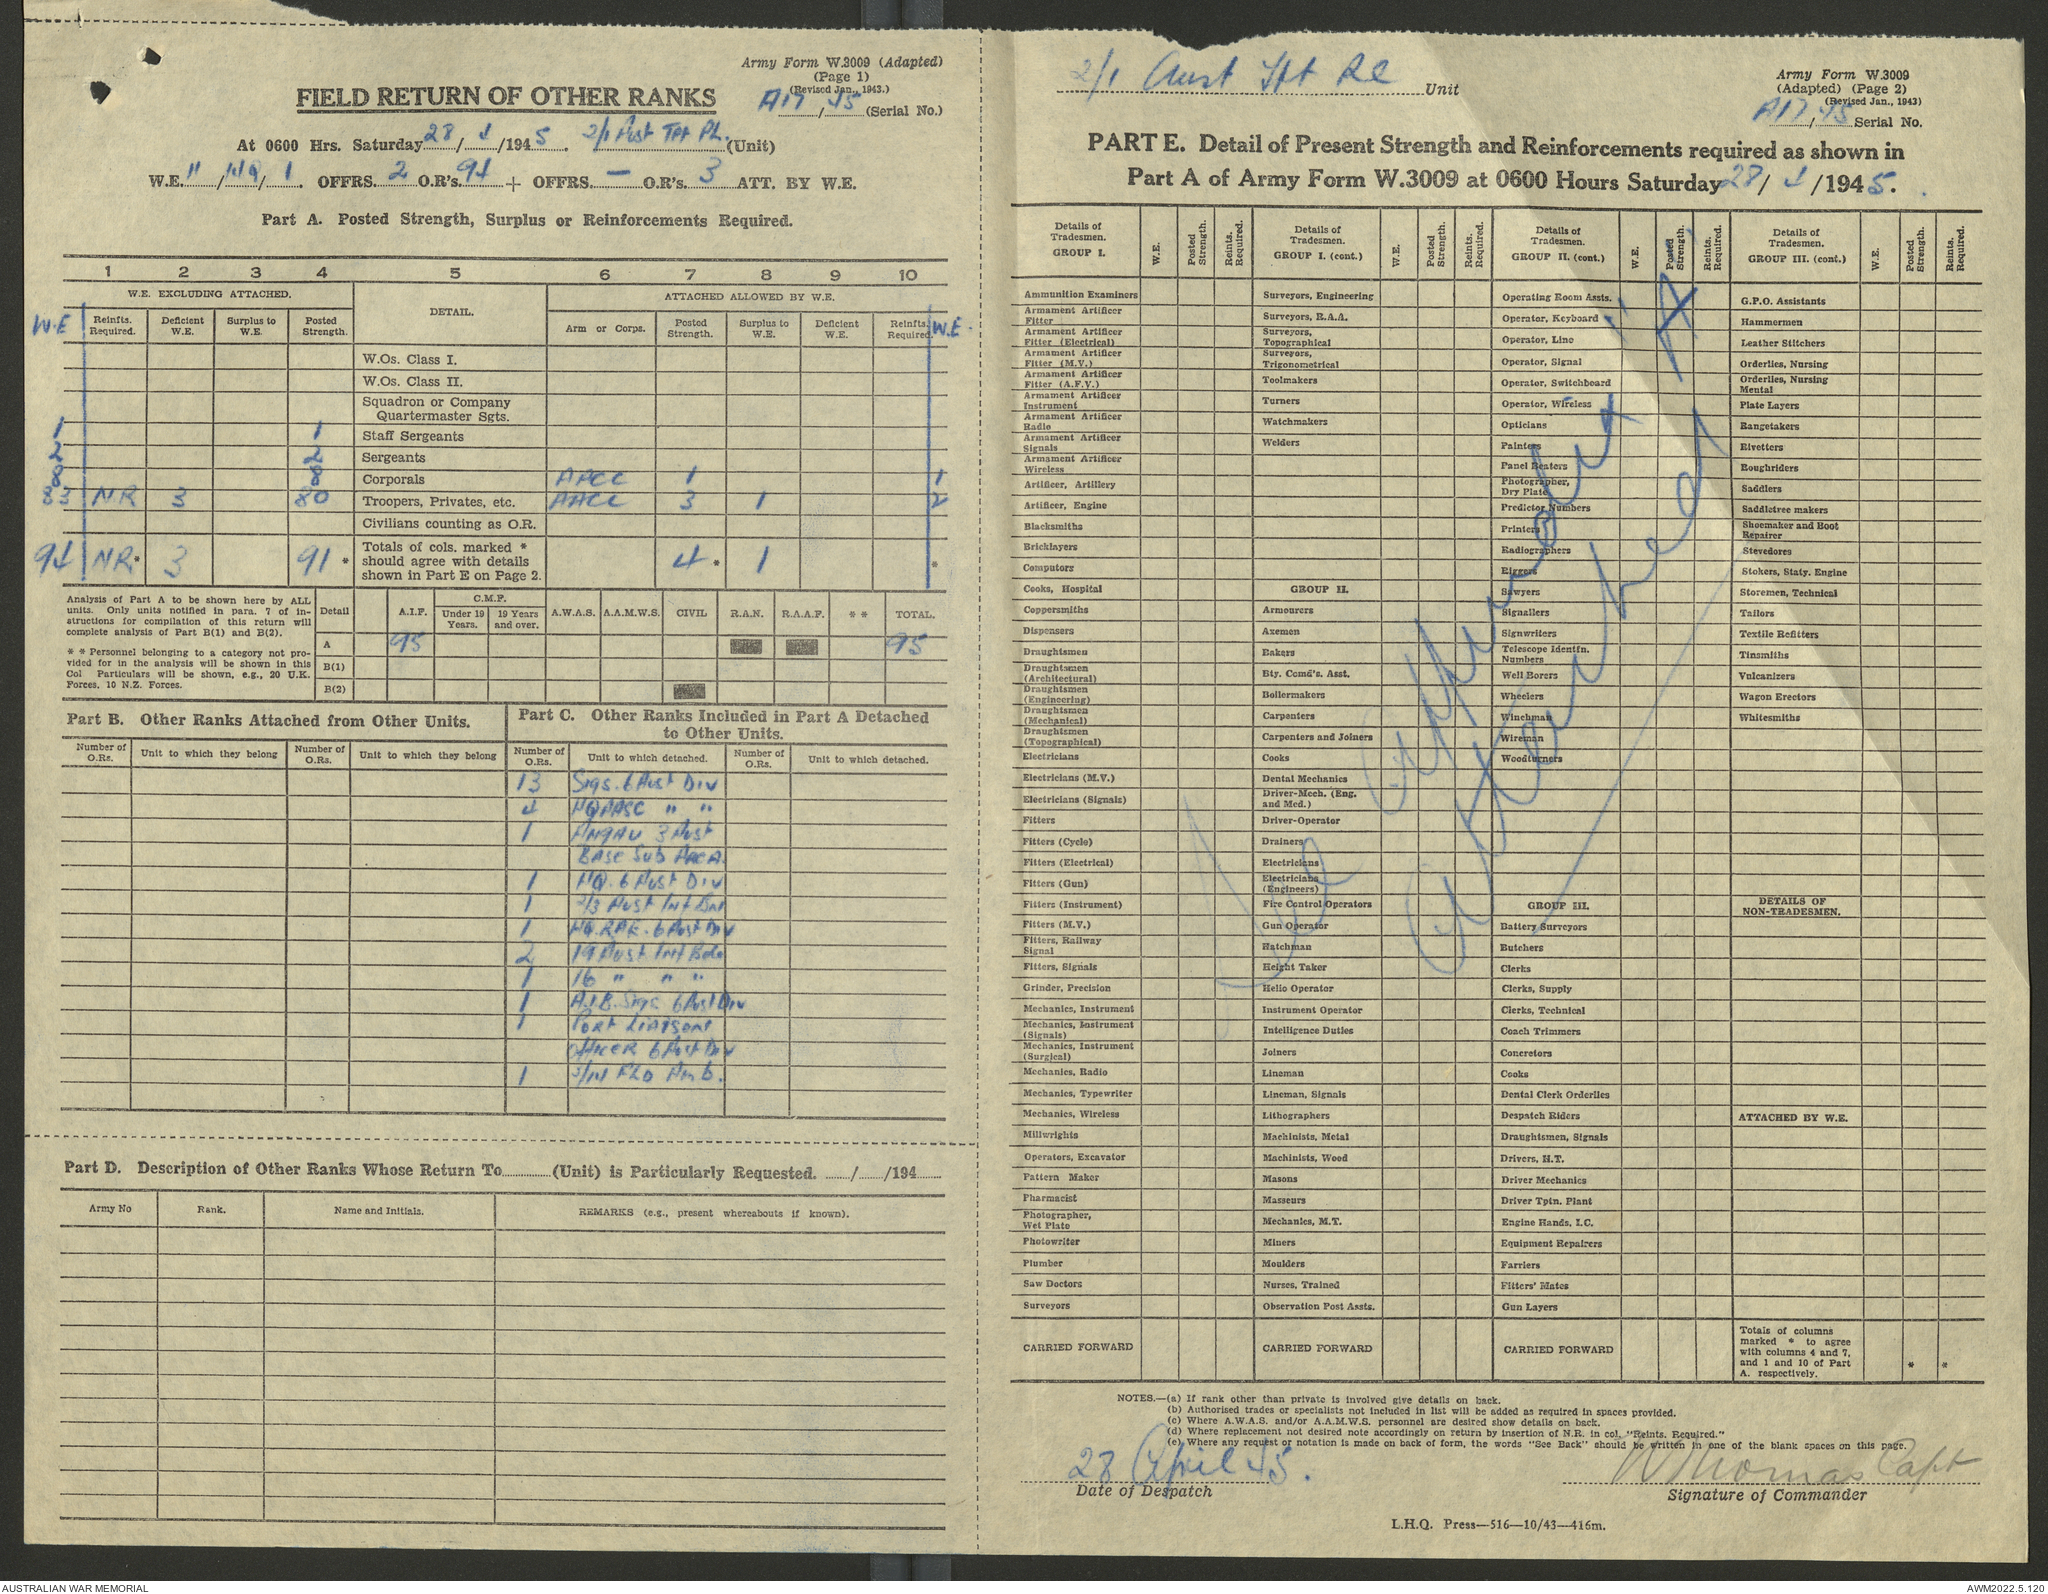 Army Form W.3009 (Adapted)
(Page 1)
(Revised Jan., 1943.)
FIELD RETURN OF OTHER RANKS
A17/45 (Serial No.)
At 0600 Hrs. Saturday 28/4/1945. 2/1 Aust Tpt Pl. (Unit)
W.E. 11/ /1. OFFRS. 2 O.R's. 94 + OFFRS. — O.R's. 3 ATT. BY W.E.
Part A. Posted Strength, Surplus or Reinforcements Required.
1 2 3 4 5 6 7 8 9 10
W.E. EXCLUDING ATTACHED. DETAIL. ATTACHED ALLOWED BY W.E.
W.E Reinfts. Required. Deficient W.E. Surplus to W.E. Posted Strength. Arm or Corps. Posted Strength. Surplus to W.E. Deficient W.E. Reinfts. Required. W.E.
W.Os. Class I.
W.Os. Class II.
Squadron or Company Quartermaster Sgts.
1 1 Staff Sergeants
2 2 Sergeants
8 8 Corporals AACC 1 1
83 NR 3 80 Troopers, Privates, etc. AACC 3 1 2
Civilians counting as O.R.
94 NR* 3 91 * Totals of cols. marked * should agree with details shown in Part E on Page 2. 4 * 1 *
Analysis of Part A to be shown here by ALL units. Only units notified in para. 7 of instructions for compilation of this return will complete analysis of Part B(1) and B(2).
* * Personnel belonging to a category not provided for in the analysis will be shown in this Col Particulars will be shown, e.g., 20 U.K. Forces, 10 N.Z. Forces.
Detail A.I.F. C.M.F. Under 19 Years. 19 Years and over. A.W.A.S. A.A.M.W.S. CIVIL R.A.N. R.A.A.F. * * TOTAL.
A 95 95
B(1)
B(2)
Part B. Other Ranks Attached from Other Units.
Number of O.Rs. Unit to which they belong Number of O.Rs. Unit to which they belong
Part C. Other Ranks Included in Part A Detached to Other Units.
Number of O.Rs. Unit to which detached. Number of O.Rs. Unit to which detached.
13 Sigs. 6 Aust Div
4 HQ AASC " "
1 ANGAU 3 Aust
Base Sub Area.
1 HQ. 6 Aust Div
1 2/3 Aust Inf Bn
1 HQ. RAE. 6 Aust Div
2 19 Aust Inf Bde
1 16 " " "
1 Sigs 6 Aust Div
1 Port Liaison
Officer 6 Aust Div
1 Fld Amb.
Part D. Description of Other Ranks Whose Return To (Unit) is Particularly Requested. / /194
Army No Rank. Name and Initials. REMARKS (e.g., present whereabouts if known).
2/1 Aust Tpt Pl Unit
Army Form W.3009
(Adapted) (Page 2)
(Revised Jan., 1943)
A17/45 Serial No.
PART E. Detail of Present Strength and Reinforcements required as shown in
Part A of Army Form W.3009 at 0600 Hours Saturday 28/4/1945.
Details of Tradesmen. GROUP I. W.E. Posted Strength. Reints. Required.
Ammunition Examiners
Armament Artificer Fitter
Armament Artificer Fitter (Electrical)
Armament Artificer Fitter (M.V.)
Armament Artificer Fitter (A.F.V.)
Armament Artificer Instrument
Armament Artificer Radio
Armament Artificer Signals
Armament Artificer Wireless
Artificer, Artillery
Artificer, Engine
Blacksmiths
Bricklayers
Computors
Cooks, Hospital
Coppersmiths
Dispensers
Draughtsmen
Draughtsmen (Architectural)
Draughtsmen (Engineering)
Draughtsmen (Mechanical)
Draughtsmen (Topographical)
Electricians
Electricians (M.V.)
Electricians (Signals)
Fitters
Fitters (Cycle)
Fitters (Electrical)
Fitters (Gun)
Fitters (Instrument)
Fitters (M.V.)
Fitters, Railway Signal
Fitters, Signals
Grinder, Precision
Mechanics, Instrument
Mechanics, Instrument (Signals)
Mechanics, Instrument (Surgical)
Mechanics, Radio
Mechanics, Typewriter
Mechanics, Wireless
Millwrights
Operators, Excavator
Pattern Maker
Pharmacist
Photographer, Wet Plate
Photowriter
Plumber
Saw Doctors
Surveyors
CARRIED FORWARD
Details of Tradesmen. GROUP I. (cont.) W.E. Posted Strength. Reints. Required.
Surveyors, Engineering
Surveyors, R.A.A.
Surveyors, Topographical
Surveyors, Trigonometrical
Toolmakers
Turners
Watchmakers
Welders
GROUP II.
Armourers
Axemen
Bakers
Bty. Comd's. Asst.
Boilermakers
Carpenters
Carpenters and Joiners
Cooks
Dental Mechanics
Driver-Mech. (Eng. and Med.)
Driver-Operator
Drainers
Electricians
Electricians (Engineers)
Fire Control Operators
Gun Operator
Hatchman
Height Taker
Helio Operator
Instrument Operator
Intelligence Duties
Joiners
Lineman
Lineman, Signals
Lithographers
Machinists, Metal
Machinists, Wood
Masons
Masseurs
Mechanics, M.T.
Miners
Moulders
Nurses, Trained
Observation Post Assts.
CARRIED FORWARD
Details of Tradesmen. GROUP II. (cont.) W.E. Posted Strength. Reints. Required.
Operating Room Assts.
Operator, Keyboard
Operator, Line
Operator, Signal
Operator, Switchboard
Operator, Wireless
Opticians
Painters
Panel Beaters
Photographer, Dry Plate
Predictor Numbers
Printers
Radiographers
Riggers
Sawyers
Signallers
Signwriters
Telescope Identfn. Numbers
Well Borers
Wheelers
Winchman
Wireman
Woodturners
GROUP III.
Battery Surveyors
Butchers
Clerks
Clerks, Supply
Clerks, Technical
Coach Trimmers
Concretors
Cooks
Dental Clerk Orderlies
Despatch Riders
Draughtsmen, Signals
Drivers, H.T.
Driver Mechanics
Driver Tptn. Plant
Engine Hands, I.C.
Equipment Repairers
Farriers
Fitters' Mates
Gun Layers
CARRIED FORWARD
Details of Tradesmen. GROUP III. (cont.) W.E. Posted Strength. Reints. Required.
G.P.O. Assistants
Hammermen
Leather Stitchers
Orderlies, Nursing
Orderlies, Nursing Mental
Plate Layers
Rangetakers
Rivetters
Roughriders
Saddlers
Saddletree makers
Shoemaker and Boot Repairer
Stevedores
Stokers, Staty. Engine
Storemen, Technical
Tailors
Textile Refitters
Tinsmiths
Vulcanizers
Wagon Erectors
Whitesmiths
DETAILS OF NON-TRADESMEN.
ATTACHED BY W.E.
Totals of columns marked * to agree with columns 4 and 7, and 1 and 10 of Part A. respectively. * *
See Appendix "A"
Attached
NOTES.—(a) If rank other than private is involved give details on back.
(b) Authorised trades or specialists not included in list will be added as required in spaces provided.
(c) Where A.W.A.S. and/or A.A.M.W.S. personnel are desired show details on back.
(d) Where replacement not desired note accordingly on return by insertion of N.R. in col. "Reints. Required."
(e) Where any request or notation is made on back of form, the words "See Back" should be written in one of the blank spaces on this page.
28 April 45.
Date of Despatch
W Thomas Capt
Signature of Commander
L.H.Q. Press—516—10/43—416m.
AUSTRALIAN WAR MEMORIAL
AWM2022.5.120